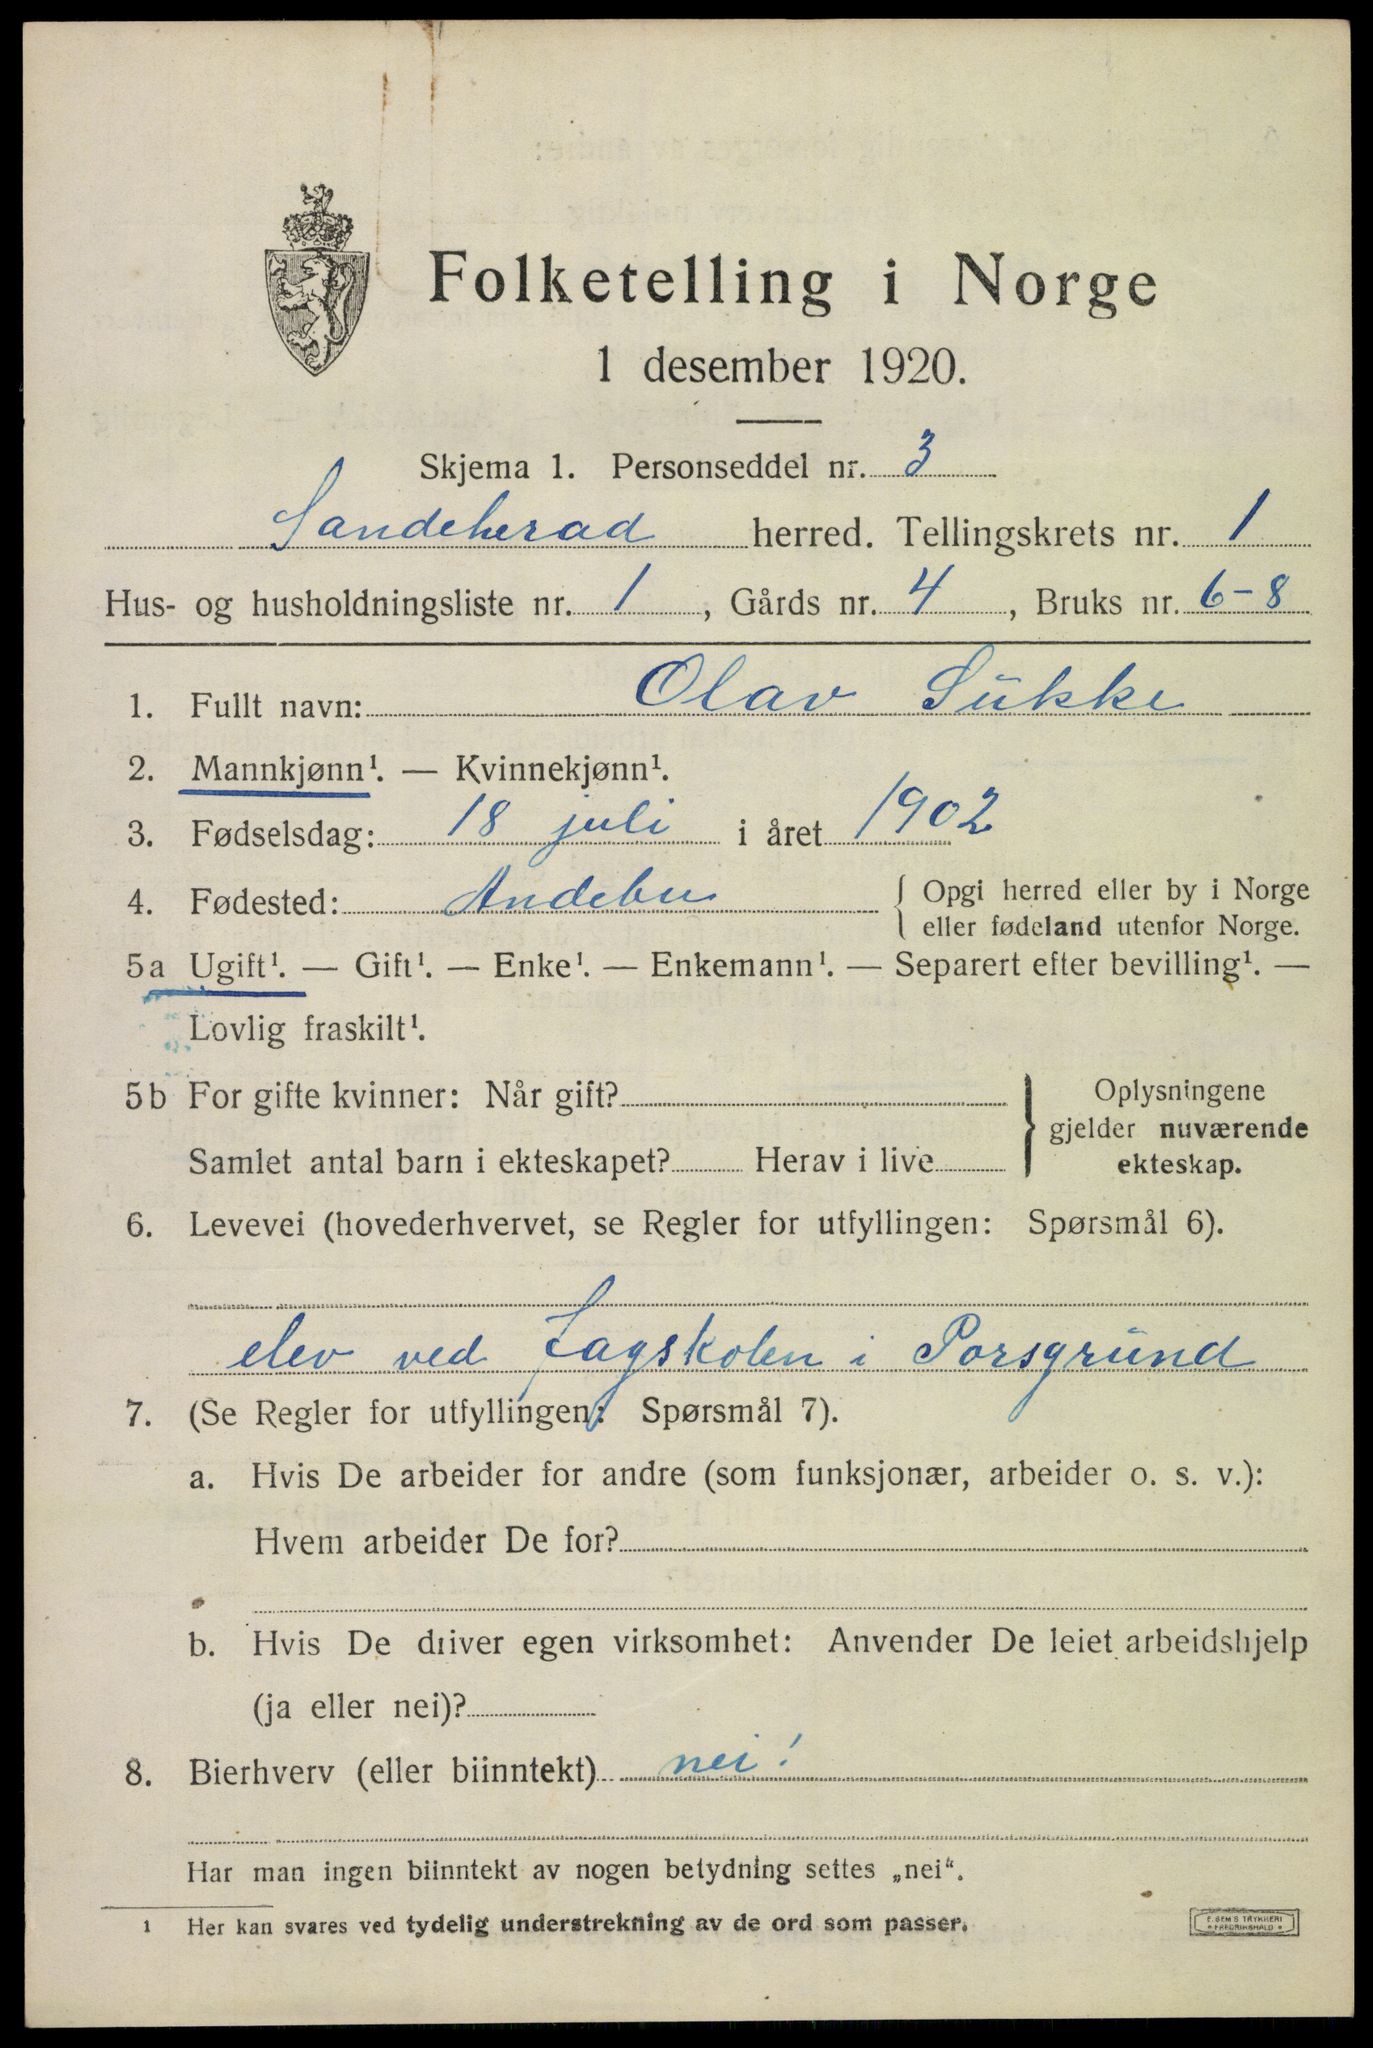 Folketelling i Norge
1 desember 1920.
Skjema 1. Personseddel nr. 3
Sandeherad herred. Tellingskrets nr. 1
Hus- og husholdningsliste nr. 1, Gårds nr. 4, Bruks nr. 6-8
1. Fullt navn: Olav Sukke
2. Mannkjønn¹. — Kvinnekjønn¹.
3. Fødselsdag: 18 juli i året 1902
4. Fødested: Andebu { Opgi herred eller by i Norge
eller fødeland utenfor Norge.
5a Ugift¹. — Gift¹. — Enke¹. — Enkemann¹. — Separert efter bevilling¹. —
Lovlig fraskilt¹.
5b For gifte kvinner: Når gift?
Samlet antal barn i ekteskapet? Herav i live
} Oplysningene
gjelder nuværende
ekteskap.
6. Levevei (hovederhvervet, se Regler for utfyllingen: Spørsmål 6).
elev ved Fagskolen i Porsgrund
7. (Se Regler for utfyllingen: Spørsmål 7).
a. Hvis De arbeider for andre (som funksjonær, arbeider o. s. v.):
Hvem arbeider De for?
b. Hvis De driver egen virksomhet: Anvender De leiet arbeidshjelp
(ja eller nei)?
8. Bierhverv (eller biinntekt) nei!
Har man ingen biinntekt av nogen betydning settes „nei“.
¹ Her kan svares ved tydelig understrekning av de ord som passer.
E. SEM'S TRYKKERI
FREDRIKSHALD